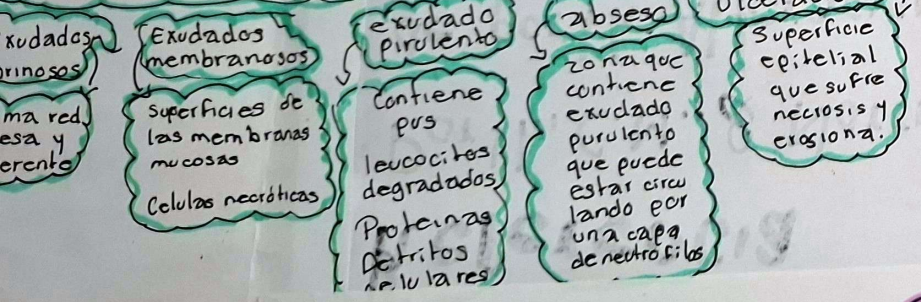 Exudados
membranosos
superficies de
las membranas
mucosas
Celulas necróticas
exudado
pirulento
Contiene
pus
leucocitos
degradados
Proteinas
Detritos
celulares
abseso
zona que
contiene
exudado
purulento
que puede
estar circu
lando por
una capa
de neutrofilos
Superficie
epitelial
que sufre
necrosis y
erosiona.